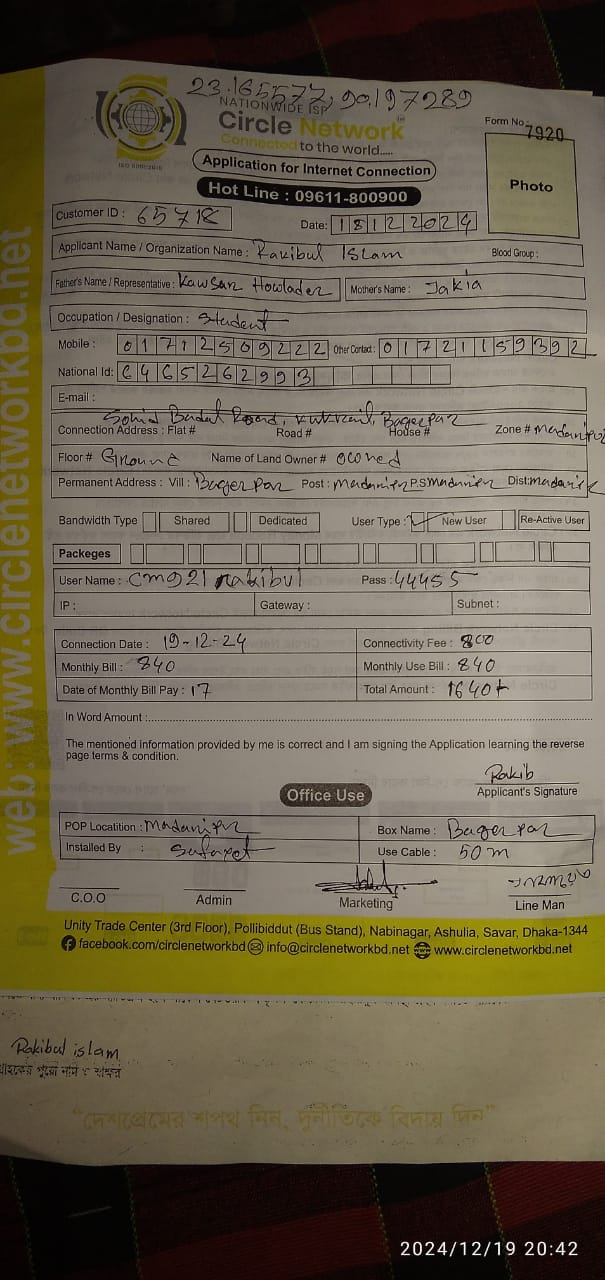 23.165577, 90.197289
NATIONWIDE ISP
Circle Network
Connected to the world.....
ISO 9001:2015
Form No. 7920
Application for Internet Connection
Photo
Hot Line : 09611-800900
Customer ID : 65718
Date: 18122024
Applicant Name / Organization Name : Rakibul Islam
Blood Group :
Father's Name / Representative : Kawsar Howlader Mother's Name : Jakia
Occupation / Designation : Student
Mobile : 01712509222 Other Contact : 01721159392
National Id: 6465262993
E-mail :
Sohid Badal Road, Kukrail, Bagerpar
Connection Address : Flat # Road # House # Zone # Madaripur
Floor # Ground Name of Land Owner # owned
Permanent Address : Vill : Bagerpar Post : Madaripur P.S Madaripur Dist: Madarip
Bandwidth Type Shared Dedicated User Type : New User Re-Active User
Packeges
User Name : cmg21rakibul Pass : 44455
IP : Gateway : Subnet :
Connection Date : 19-12-24 Connectivity Fee : 800
Monthly Bill : 840 Monthly Use Bill : 840
Date of Monthly Bill Pay : 17 Total Amount : 1640
In Word Amount :
The mentioned information provided by me is correct and I am signing the Application learning the reverse
page terms & condition.
Rakib
Applicant's Signature
Office Use
POP Locatition : Madaripur Box Name : Bagerpar
Installed By : Use Cable : 50 m
C.O.O Admin Marketing Line Man
Unity Trade Center (3rd Floor), Pollibiddut (Bus Stand), Nabinagar, Ashulia, Savar, Dhaka-1344
facebook.com/circlenetworkbd info@circlenetworkbd.net www.circlenetworkbd.net
web: www.circlenetworkbd.net
Rakibul islam
"দেশপ্রেমের শপথ নিন, দুর্নীতিকে বিদায় দিন"
2024/12/19 20:42